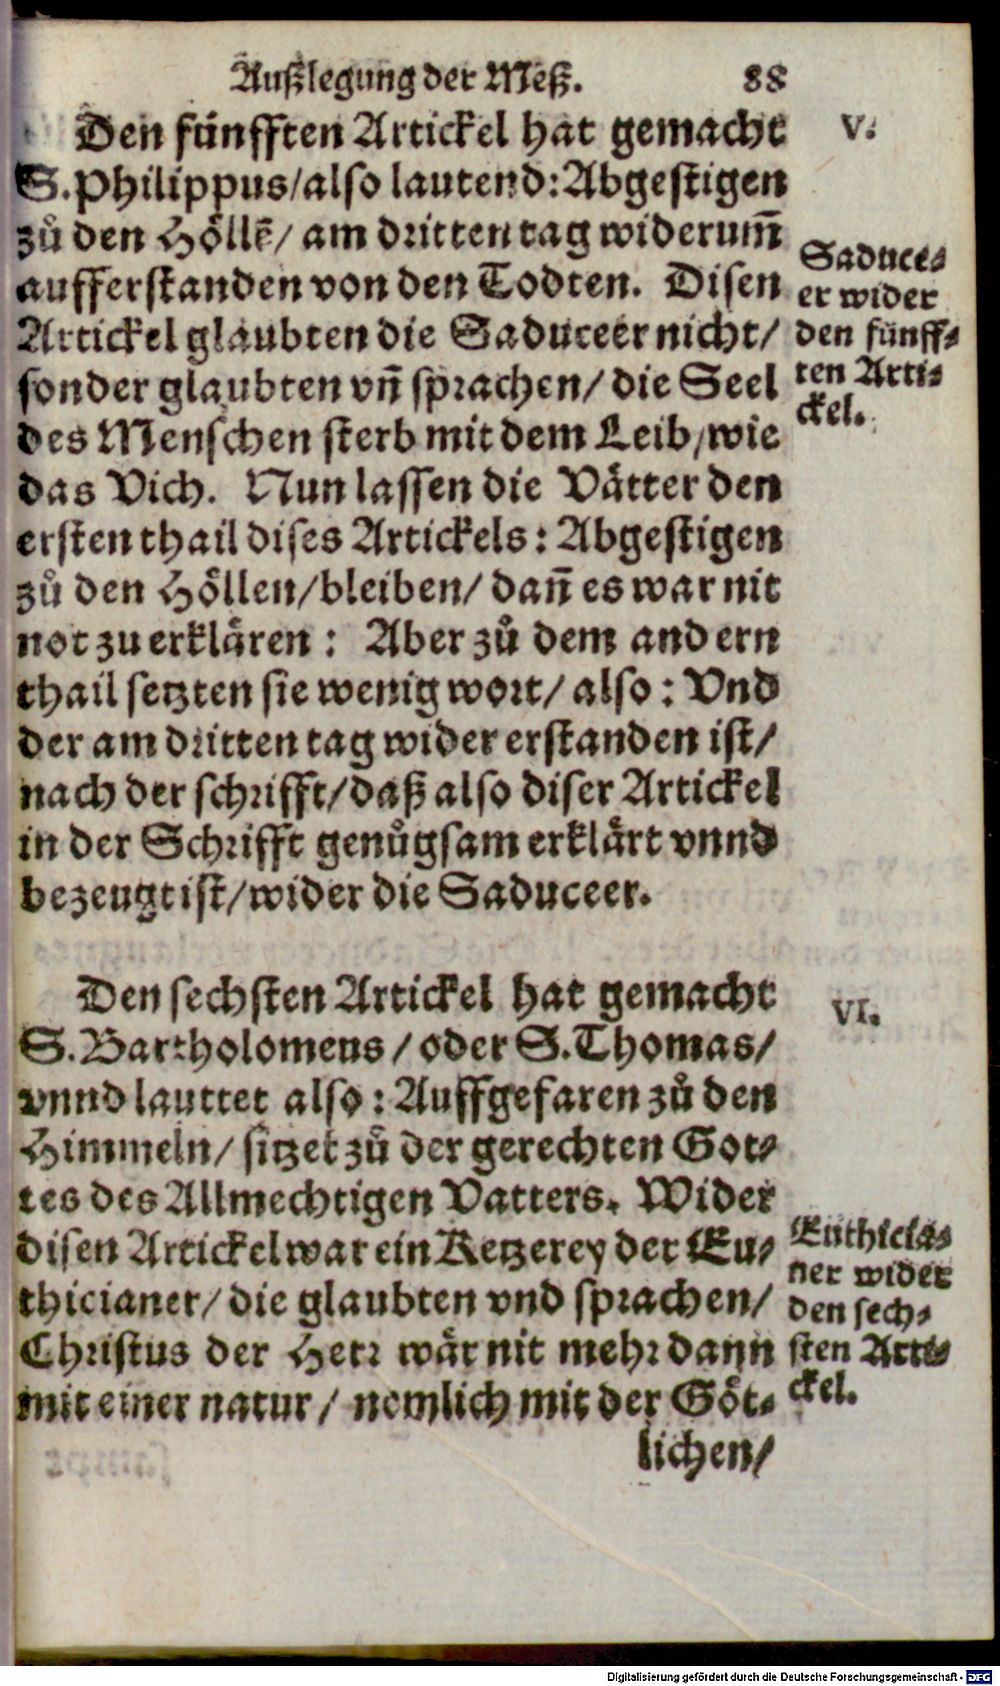 Außlegung der Meß. 88
Den fünfften Artickel hat gemacht
S. Philippus/also lautend: Abgestigen
zů den Hőllẽ/ am dritten tag widerum̃
aufferstanden von den Todten. Disen
Artickel glaubten die Saduceer nicht/
sonder glaubten vñ sprachen/ die Seel
des Menschen sterb mit dem Leib/wie
das Vich. Nun lassen die Vätter den
ersten thail dises Artickels: Abgestigen
zů den Höllen/bleiben/ dañ es war nit
not zu erklären: Aber zů dem andern
thail setzten sie wenig wort/ also: Vnd
der am dritten tag wider erstanden ist/
nach der schrifft/daß also diser Artickel
in der Schrifft genůgsam erklärt vnnd
bezeugt ist/wider die Saduceer.
V.
Saduce⸗
er wider
den fünff⸗
ten Arti⸗
ckel.
Den sechsten Artickel hat gemacht
S. Bartholomeus/ oder S. Thomas/
vnnd lauttet also: Auffgefaren zů den
Himmeln/ sitzet zů der gerechten Got⸗
tes des Allmechtigen Vatters. Wider
disen Artickel war ein Ketzerey der Eu⸗
thicianer/ die glaubten vnd sprachen/
Christus der Herr wär nit mehr dann
mit einer natur/ nemlich mit der Göt⸗
lichen/
VI.
Euthicia⸗
ner wider
den sech⸗
sten Arti⸗
ckel.
Digitalisierung gefördert durch die Deutsche Forschungsgemeinschaft - DFG